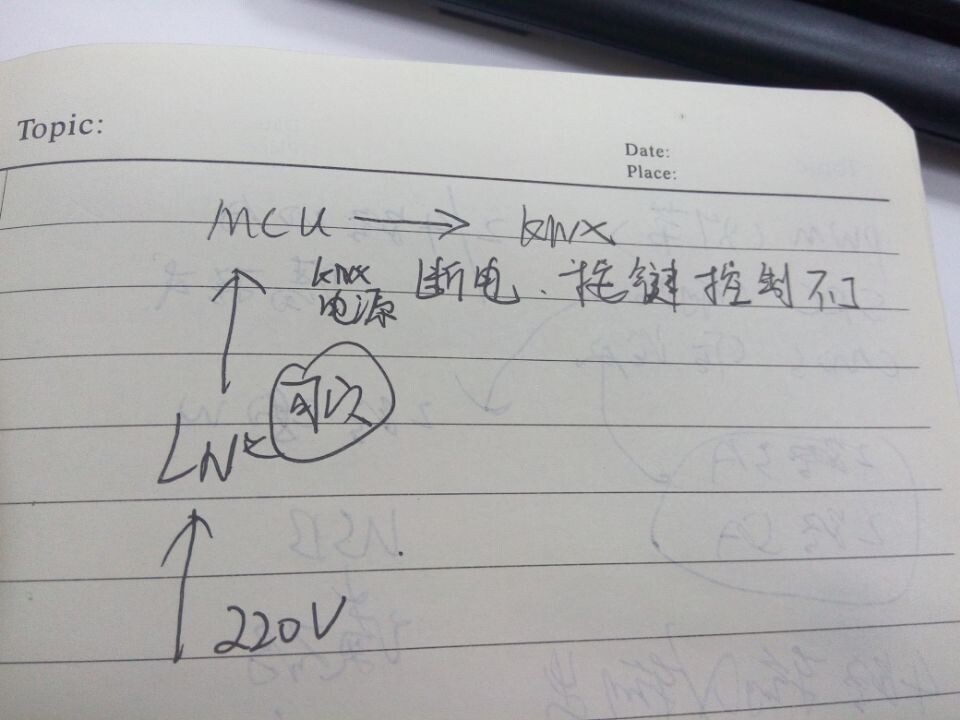 Topic:
Date:
Place:
MCU → KNX
KNX 断电. 按键控制不了
电源
可以
LN
220V
USB